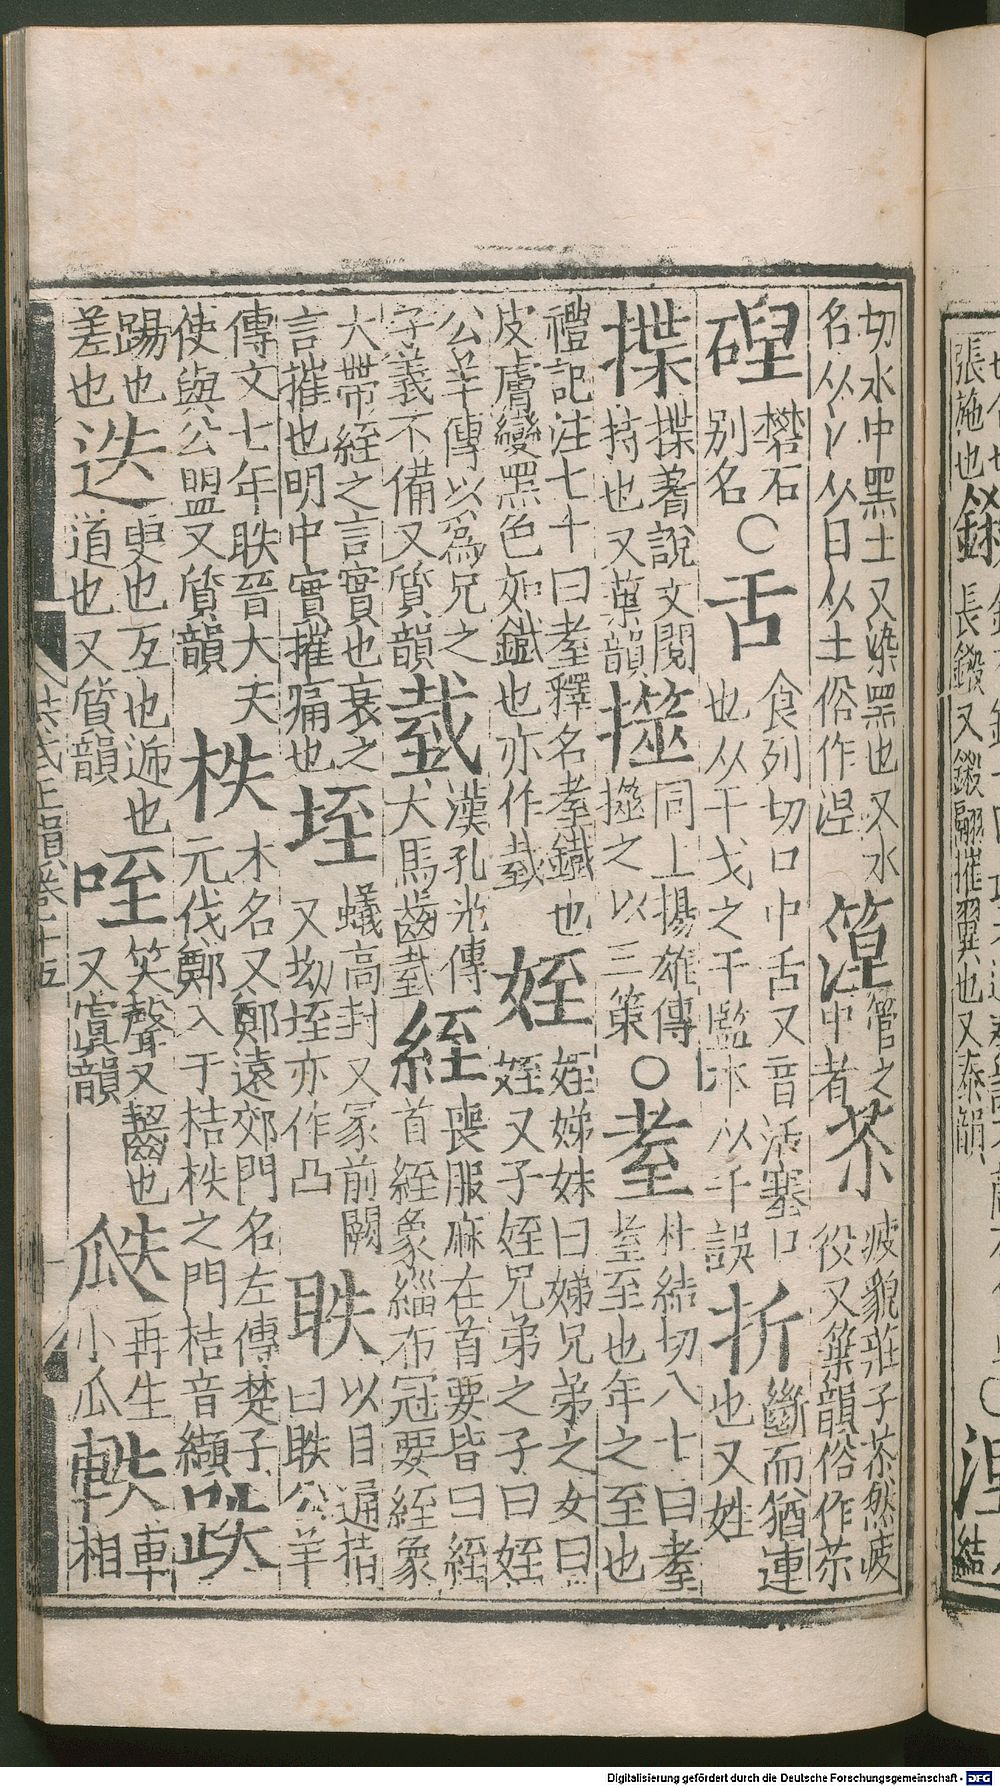 切水中黑土又染黑也又水
名从氵从日从土俗作湼
篞
管之
中者
苶
疲貌莊子苶然疲
役又葉韻俗作苶
硻
礬石
别名
〇
舌
食列切口中舌又音活塞口
也从干戈之干監本从千誤
折
斷而猶連
也又姓
揲
揲蓍說文閱
持也又葉韻
同上揚雄傳
之以三策
〇
耊
杜結切八十曰耋
耋至也年之至也
禮記注七十曰耋釋名耋鐵也
皮膚變黑色如鐵也亦作
姪
姪娣妹曰娣兄弟之女曰
姪又子姪兄弟之子曰姪
公羊傳以為兄之
子義不備又質韻
漢孔光傳
犬馬齒
絰
喪服麻在首要皆曰絰
首絰象緇布冠要絰象
大帶絰之言實也衰之
言摧也明中實摧痛也
垤
蟻高封又冢前闕
又坳垤亦作凸
眣
以目通指
曰眣公羊
傳文七年眣晉大夫
使與公盟又質韻
柣
木名又鄭遠郊門名左傳楚子
元伐鄭入于桔柣之門桔音纈
跌
踢也
差也
迭
更也互也递也
道也又質韻
咥
笑聲又齧也
又寘韻
瓞
再生
小瓜
軼
車
相
洪武正韻卷十五
張施也
長鎩又鎩翮摧翼也又泰韻
〇
涅
結
Digitalisierung gefördert durch die Deutsche Forschungsgemeinschaft - DFG